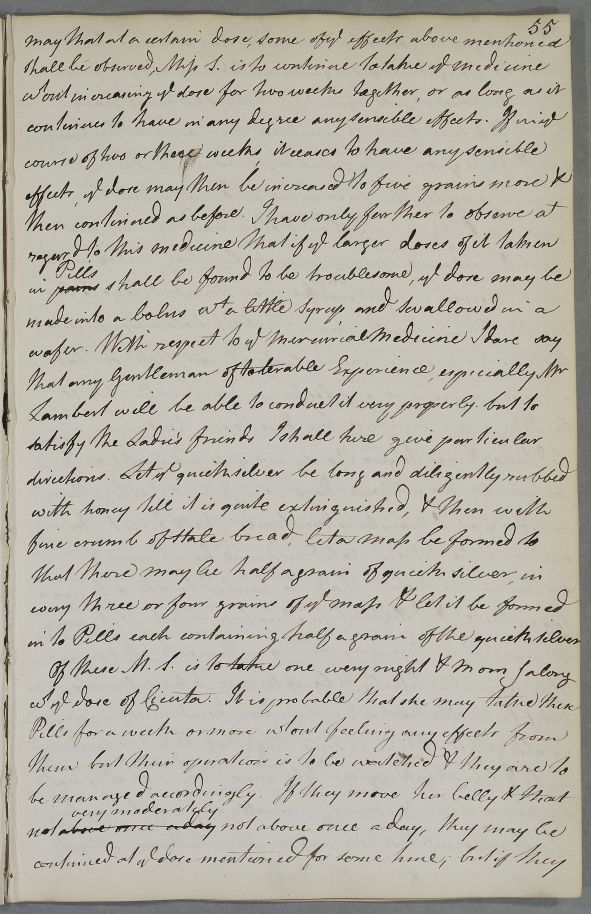 55
may that at a certain dose, some of ye effects above mentioned
shall be observed, Miss S. is to continue to take ye medicine
wtout increasing ye dose for two weeks together, or as long as it
continues to have in any degree any sensible effects. If in ye
course of two or three weeks, it ceases to have any sensible
effects, ye dose may then be increased to five grains more &
then continued as before. I have only further to observe wt
regard to this medicine that if ye larger doses of it taken
Pills
in pains shall be found to be troublesome, ye dose may be
made into a bolus wt a little Syrup and swallowed in a
wafer. With respect to ye Mercurial Medicine I dare say
that any Gentleman of tolerable Experience, especially Mr
Lambert will be able to conduct it very properly but to
satisfy the Ladies friends I shall here give particular
directions. Let ye quicksilver be long and diligently rubbed
with honey till it is quite extinguished, & then with
fine crumb of stale bread, let a mass be formed so
that there may be half a grain of quick silver, in
every three or four grains of ye mass & let it be formed
in to Pills each containing half a grain of the quicksilver
Of these M. S. is to take one every night & morng along
wt ye dose of Cicuta. It is probable that she may take these
Pills for a week or more wtout feeling any effects from
them but their operation is to be watched & they are to
be managed accordingly. If they move her belly & that
very moderately
not above once a day not above once a day, they may be
continued at ye dose mentioned for some time; but if they